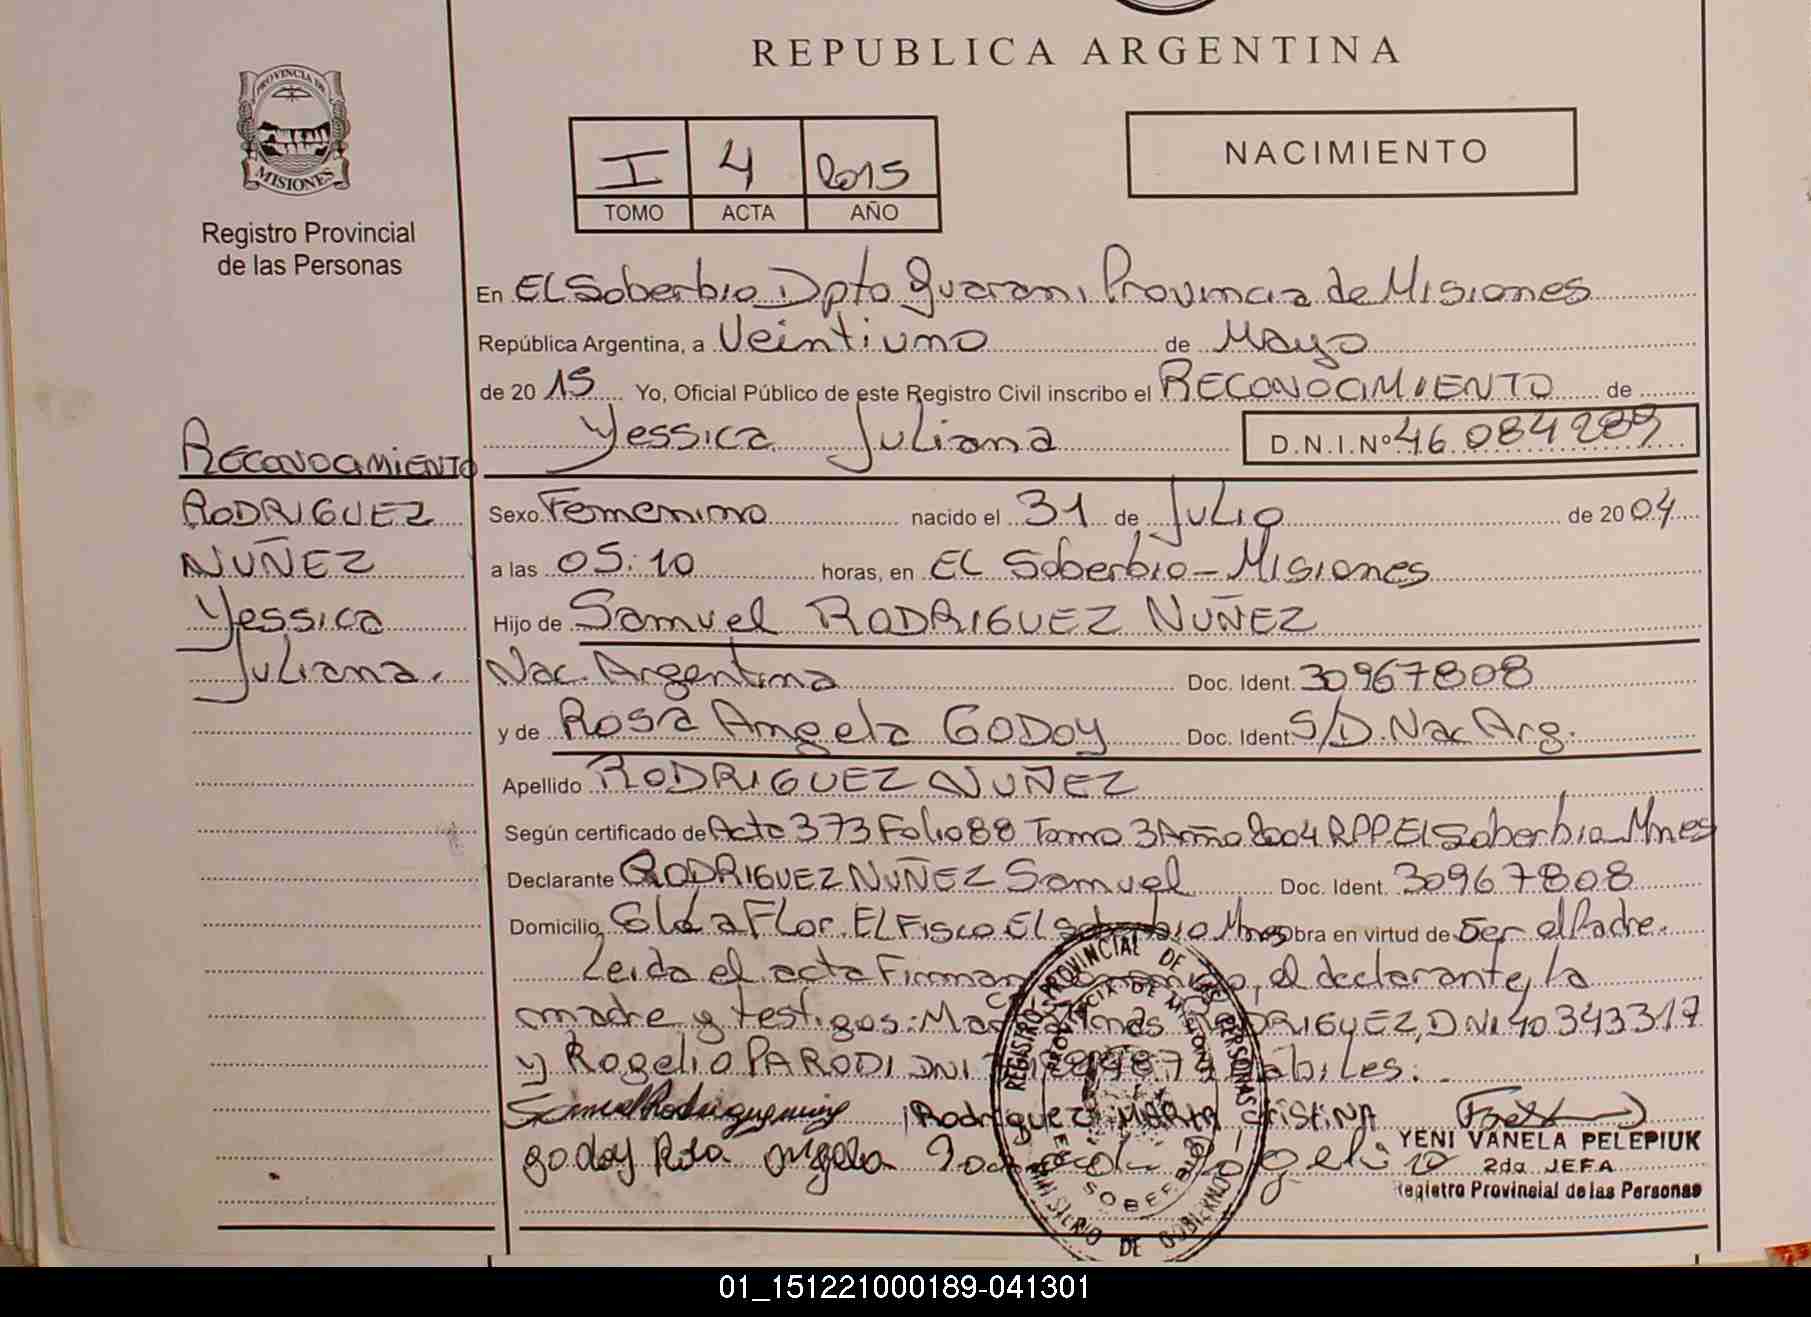 REPUBLICA ARGENTINA
PROVINCIA DE
MISIONES
Registro Provincial
de las Personas
I 4 2015
TOMO ACTA AÑO
NACIMIENTO
En El Soberbio Dpto Guarani Provincia de Misiones
República Argentina, a Veintiuno de Mayo
de 2015 Yo, Oficial Público de este Registro Civil inscribo el RECONOCIMIENTO de
Yessica Juliana D.N.I.Nº 46.084289
RECONOCIMIENTO
RODRIGUEZ
NUÑEZ
Yessica
Juliana.
Sexo Femenino nacido el 31 de Julio de 2004
a las 05:10 horas, en El Soberbio - Misiones
Hijo de Samuel RODRIGUEZ NUÑEZ
Nac. Argentina Doc. Ident. 30967808
y de Rosa Angela GODOY Doc. Ident. S/D. Nac Arg.
Apellido RODRIGUEZ NUÑEZ
Según certificado de Acta 373 Folio 88 Tomo 3 Año 2004 RPP. El Soberbio Mnes
Declarante RODRIGUEZ NUÑEZ Samuel Doc. Ident. 30967808
Domicilio Flor. El Fisco El Soberbio Mnes obra en virtud de ser el Padre.
Leida el acta Firman conmigo, el declarante, la
madre y testigos: RODRIGUEZ, DNI 40343317
y Rogelio PARODI DNI habiles.
Rodriguez MARTA CRISTINA
godoy Rosa angela Rogelio
YENI VANELA PELEPIUK
2da JEFA
Registro Provincial de las Personas
REGISTRO PROVINCIAL DE LAS PERSONAS
PROVINCIA DE MISIONES
EL SOBERBIO
MINISTERIO DE GOBIERNO
01_151221000189-041301